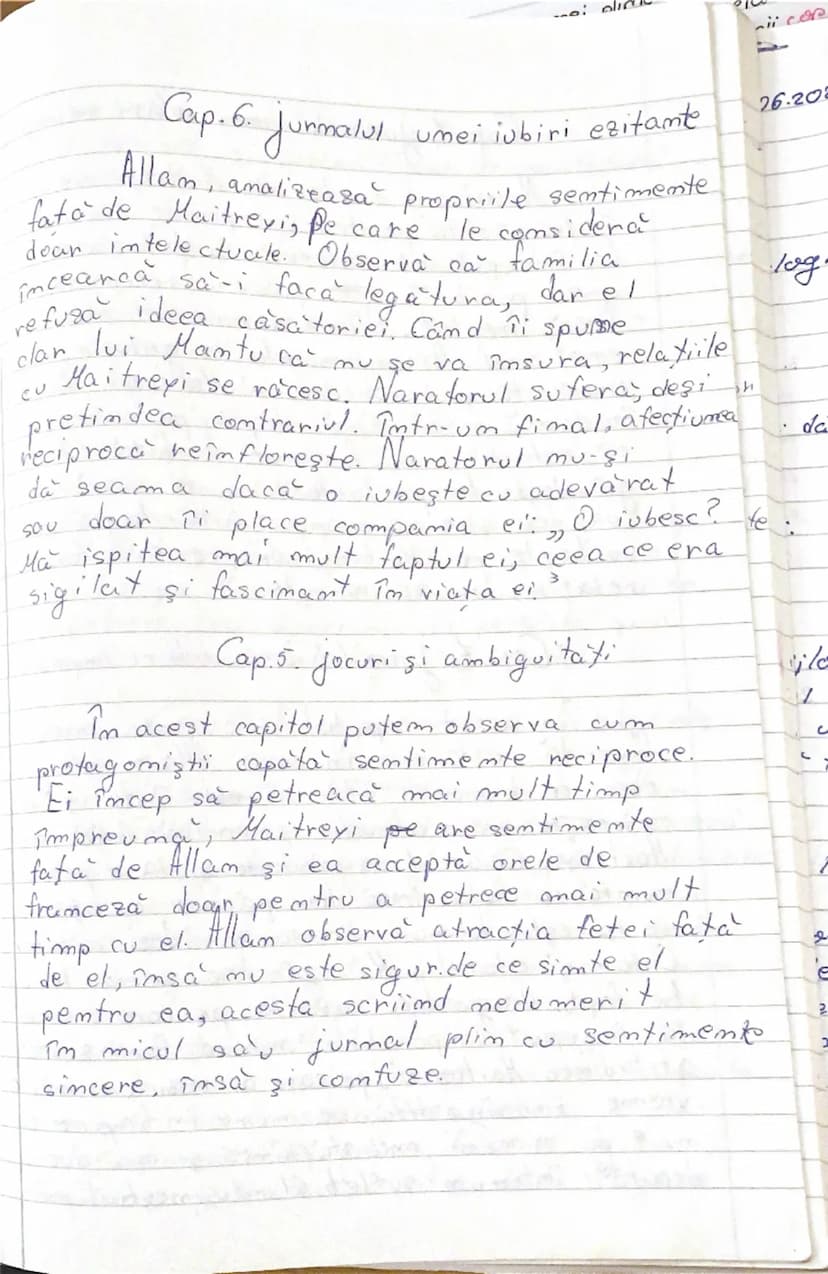 Cap.6. jurnalul unei iubiri ezitante
Allan, analizează propriile sentimente
fată de Maitreyi, pe care le consideră
doar intelectuale. Observă că familia
încearcă să-i facă legătura, dar el
refuză ideea căsătoriei. Când îi spune
clar lui Mantu că nu se va însura, relațiile
cu Maitreyi se răcesc. Naratorul suferă, deși
pretindea contrariul. Într-un final, afecțiunea
reciprocă reînflorește. Naratorul nu-și
dă seama dacă o iubește cu adevărat
sau doar îi place compania ei: „O iubesc?
Mă ispitea mai mult faptul ei, ceea ce era
sigilat și fascinant în viața ei."
Cap.5. jocuri și ambiguități
În acest capitol putem observa cum
protagoniștii capătă sentimente reciproce.
Ei încep să petreacă mai mult timp
împreună, Maitreyi pe are sentimente
fată de Allan și ea acceptă orele de
franceză doar pentru a petrece mai mult
timp cu el. Allan observă atracția fetei fată
de el, însă nu este sigur de ce simte el
pentru ea, acesta scriind nedumerit
în micul său jurnal plin cu sentimente
sincere, însă și confuze.
26.202
log
da
te: